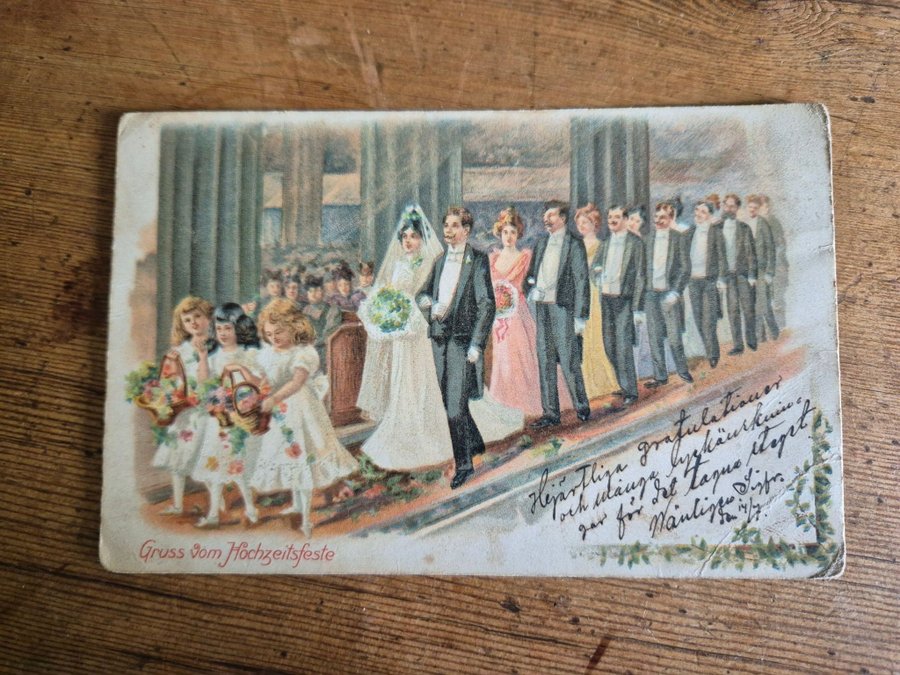 Gruss vom Hochzeitsfeste
Hejärtliga gratulationer
och många lyckönsknin-
gar för det tagna steget.
Vänligen
den 14/7